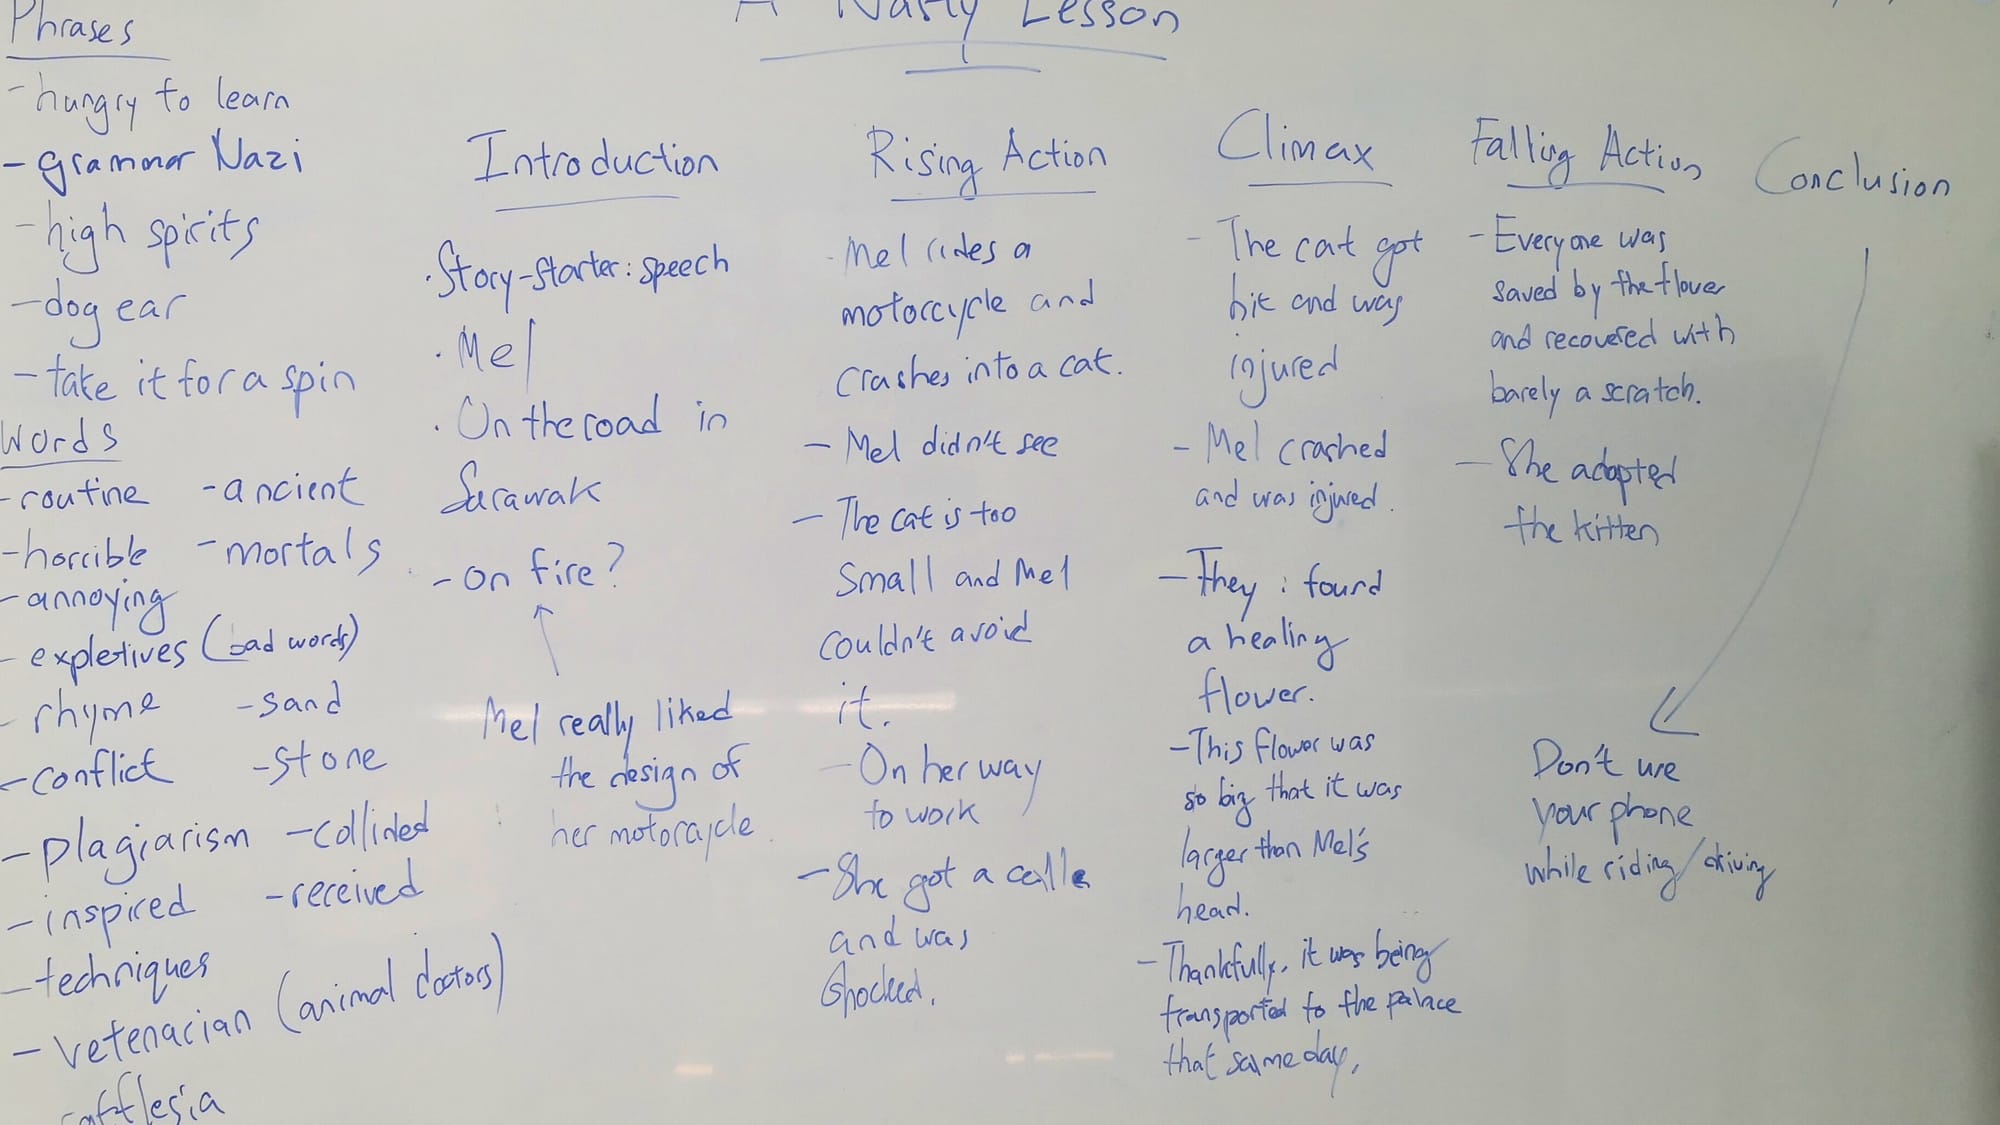 A Nasty Lesson
Phrases
- hungry to learn
- grammar Nazi
- high spirits
- dog ear
- take it for a spin
Words
- routine - ancient
- horrible - mortals
- annoying
- expletives (bad words)
- rhyme - sand
- conflict - stone
- plagiarism - collided
- inspired - received
- techniques
- vetenarian (animal doctors)
rafflesia
Introduction
· Story-starter: speech
· Mel
· On the road in
Sarawak
- On fire?
Mel really liked
the design of
her motorcycle.
Rising Action
- Mel rides a
motorcycle and
crashes into a cat.
- Mel didn't see
- The cat is too
small and Mel
couldn't avoid
it.
- On her way
to work
- She got a call
and was
shocked.
Climax
- The cat got
hit and was
injured
- Mel crashed
and was injured.
- They: found
a healing
flower.
- This flower was
so big that it was
larger than Mel's
head.
- Thankfully, it was being
transported to the palace
that same day.
Falling Action
- Everyone was
saved by the flower
and recovered with
barely a scratch.
- She adopted
the kitten
Conclusion
Don't use
your phone
while riding/driving